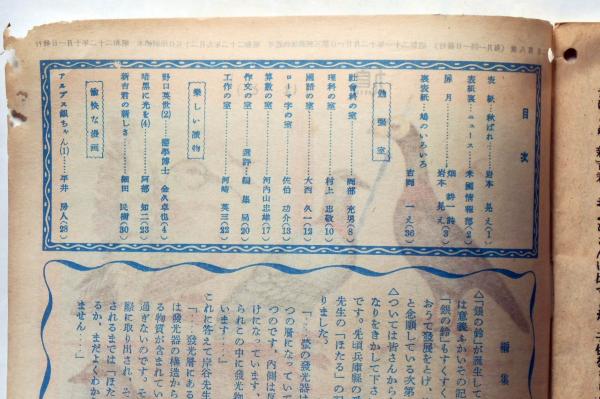 目次
表紙…秋ばれ………岩本晃え(1)
表紙裏…ニュース……米國情報部(2)
扉…月………畑耕一詩 岩本晃え(3)
裏表紙…鳩のいろいろ 吉岡一え(36)
勉強室
社会科の室………岡部充男(8)
理科の室………村上忠敬(10)
國語の室………大西久一(12)
ローマ字の室………佐伯功介(13)
算数の室………河内山忠雄(17)
作文の室………選評…編集局(20)
工作の室………河崎英三(22)
楽しい讀物
野口英世(2)……医学博士 金久卓也(4)
暗黒に光を(4)………阿部知二(23)
新吉君の新しさ………細田民樹(30)
愉快な漫画
アルプス銀ちゃん(1)……平井房人(28)
編集
△「銀の鈴」が誕生して
は意義ふかいその記
「銀の鈴」もすくすく
おうて發展をとげ、
と念願している次第
△ついては皆さんから
なりをきかして下さ
です。先頃兵庫縣の
先生の「ほたる」の記
りました。
「……螢の發光器は
つの層になっていて
つのです。内側は厚
けになっています。
られこの中に發光物
います……」
これに答えて岸谷先生
「……發光層にある
は發光器の構造から
る物質が含まれてい
過ぎないのです。そ
際に取り出され、そ
されるまでは「ほた
るか、まだよくわか
ません……」